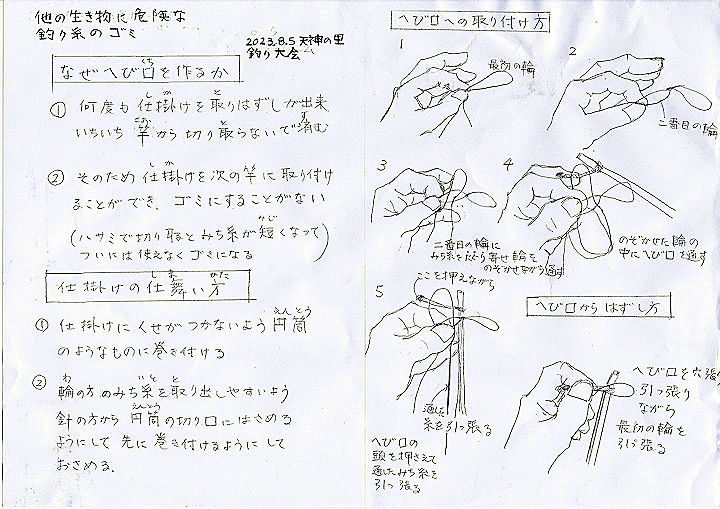 他の生き物に危険な
釣り糸のゴミ
2023.8.5 天神の里
釣り大会
なぜへび口を作るか
① 何度も仕掛けを取りはずしが出来
いちいち竿から切り取らないで済む
② そのため仕掛けを次の竿に取り付け
ることができ、ゴミにすることがない
(ハサミで切り取るとみち糸が短くなって)
ついには使えなくゴミになる
仕掛けの仕舞い方
① 仕掛けにくせがつかないよう円筒
のようなものに巻き付ける
② 輪の方のみち糸を取り出しやすいよう
針の方から円筒の切り口にはさめる
ようにして先に巻き付けるようにして
おさめる.
へび口への取り付け方
1
最初の輪
2
二番目の輪
3
二番目の輪に
みち糸をたぐり寄せ輪を
のぞかせながら通す
4
のぞかせた輪の
中にへび口を通す
5
ここを押えながら
通した
糸を引っ張る
へび口の
頭を押さえて
通したみち糸を
引っ張る
へび口からはずし方
引っ張り
ながら
最初の輪を
引っ張る